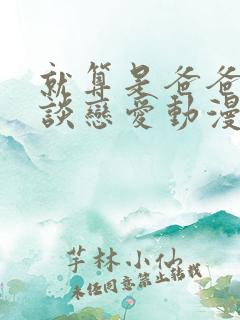 就算是爸爸
談戀愛動漫
芋林小仙
未经同意禁止转载